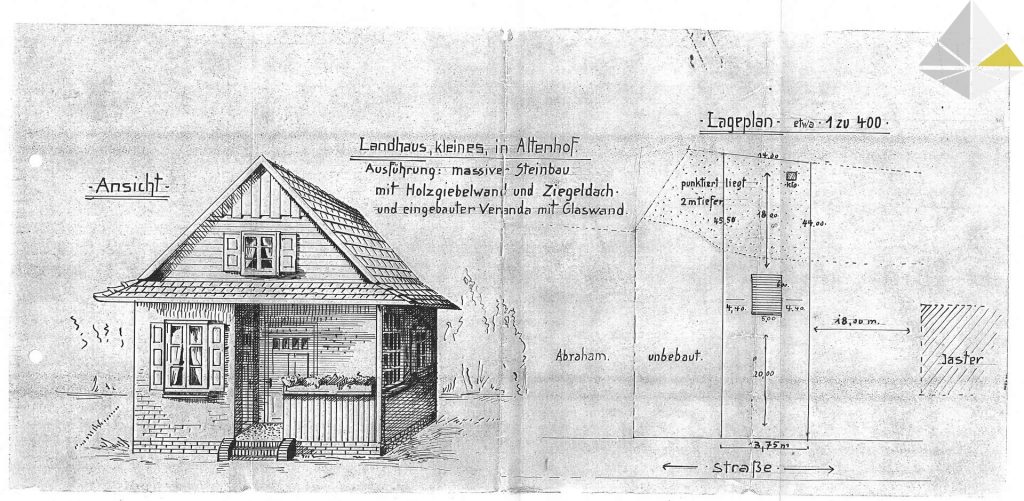 -Ansicht-
Landhaus, kleines, in Altenhof.
Ausführung: massiver Steinbau
mit Holzgiebelwand und Ziegeldach.
und eingebauter Veranda mit Glaswand.
-Lageplan- etwa 1 zu 400.
14.00
punktiert liegt
2m tiefer
45,50
18.00
44.00.
4,40.
4.40.
5,00
18,00 m.
Abraham.
unbebaut.
Jaster
20,00
13,75m
← Straße →